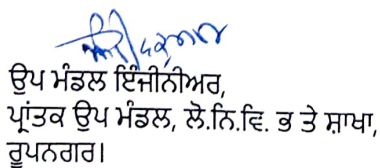 ਉਪ ਮੰਡਲ ਇੰਜੀਨੀਅਰ,
ਪ੍ਰਾਂਤਕ ਉਪ ਮੰਡਲ, ਲੋ.ਨਿ.ਵਿ. ਭ ਤੇ ਸ਼ਾਖਾ,
ਰੂਪਨਗਰ।